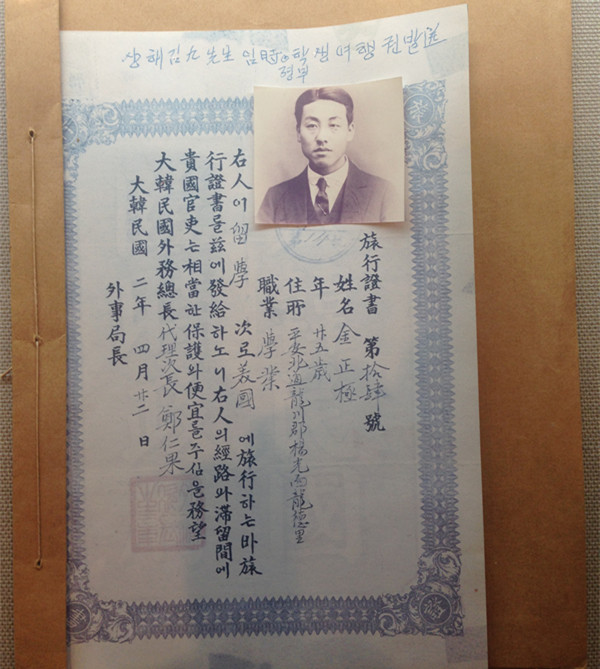 상해 김九 先生 임時정부 학생 여행권발送
旅行證書 第拾肆號
姓名 金正極
年 廿五歲
住所 平安北道龍川郡楊光面龍德里
職業 學業
右人이 留學 次로 美國 에旅行하는바旅
行證書를玆에發給하노니右人의經路와滯留間에
貴國官吏는相當한保護와便宜를주심을務望
大韓民國外務總長代理次長 鄭仁果
大韓民國 二年 四月 廿二日
外事局長